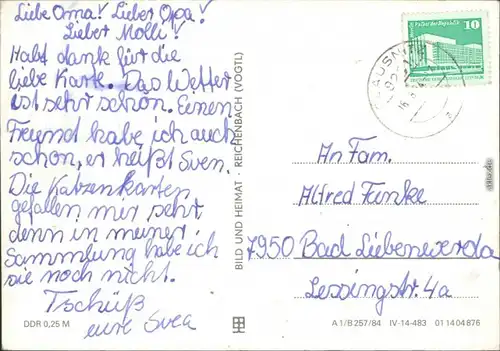 Liebe Oma! Lieber Opa!
Lieber Molli!
Habt dank für die
liebe Karte. Das Wetter
ist sehr schön. Einen
Freund habe ich auch
schon, er heißt Sven.
Die Katzenkarten
gefallen mir sehr
denn in meiner
Sammlung habe ich
sie noch nicht.
Tschüß
eure Svea
DDR 0,25 M
BILD UND HEIMAT · REICHENBACH (VOGTL)
10
An Fam.
Alfred Funke
7950 Bad Liebenwerda
Lessingstr. 4a
A 1/B 257/84 IV-14-483 01 14 04 876